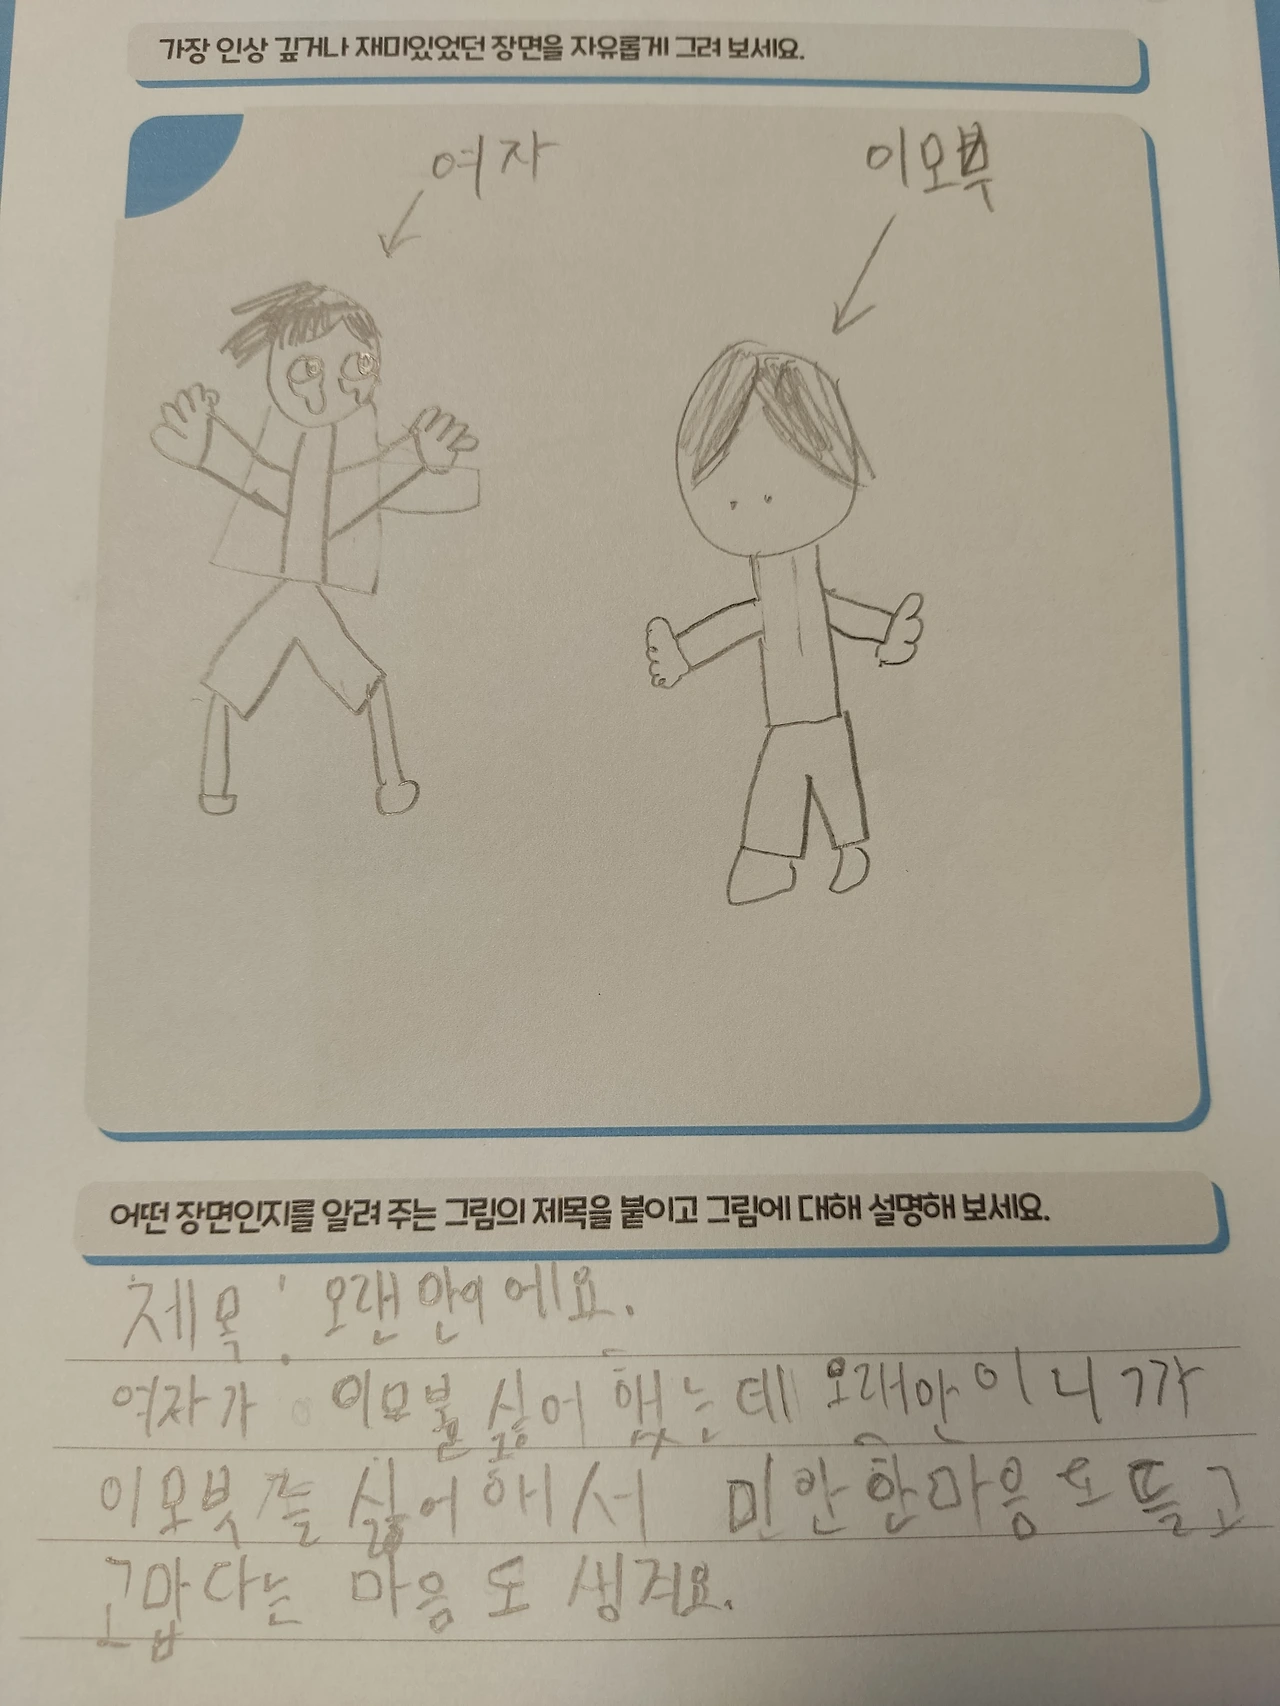 가장 인상 깊거나 재미있었던 장면을 자유롭게 그려 보세요.
여자
이모부
어떤 장면인지를 알려 주는 그림의 제목을 붙이고 그림에 대해 설명해 보세요.
제목: 오랜만이에요.
여자가 이모불 싫어 했는데 오래만이니까
이모붓를 싫어해서 미안한마음도 뜰고
고맙다는 마음도 생겨요.